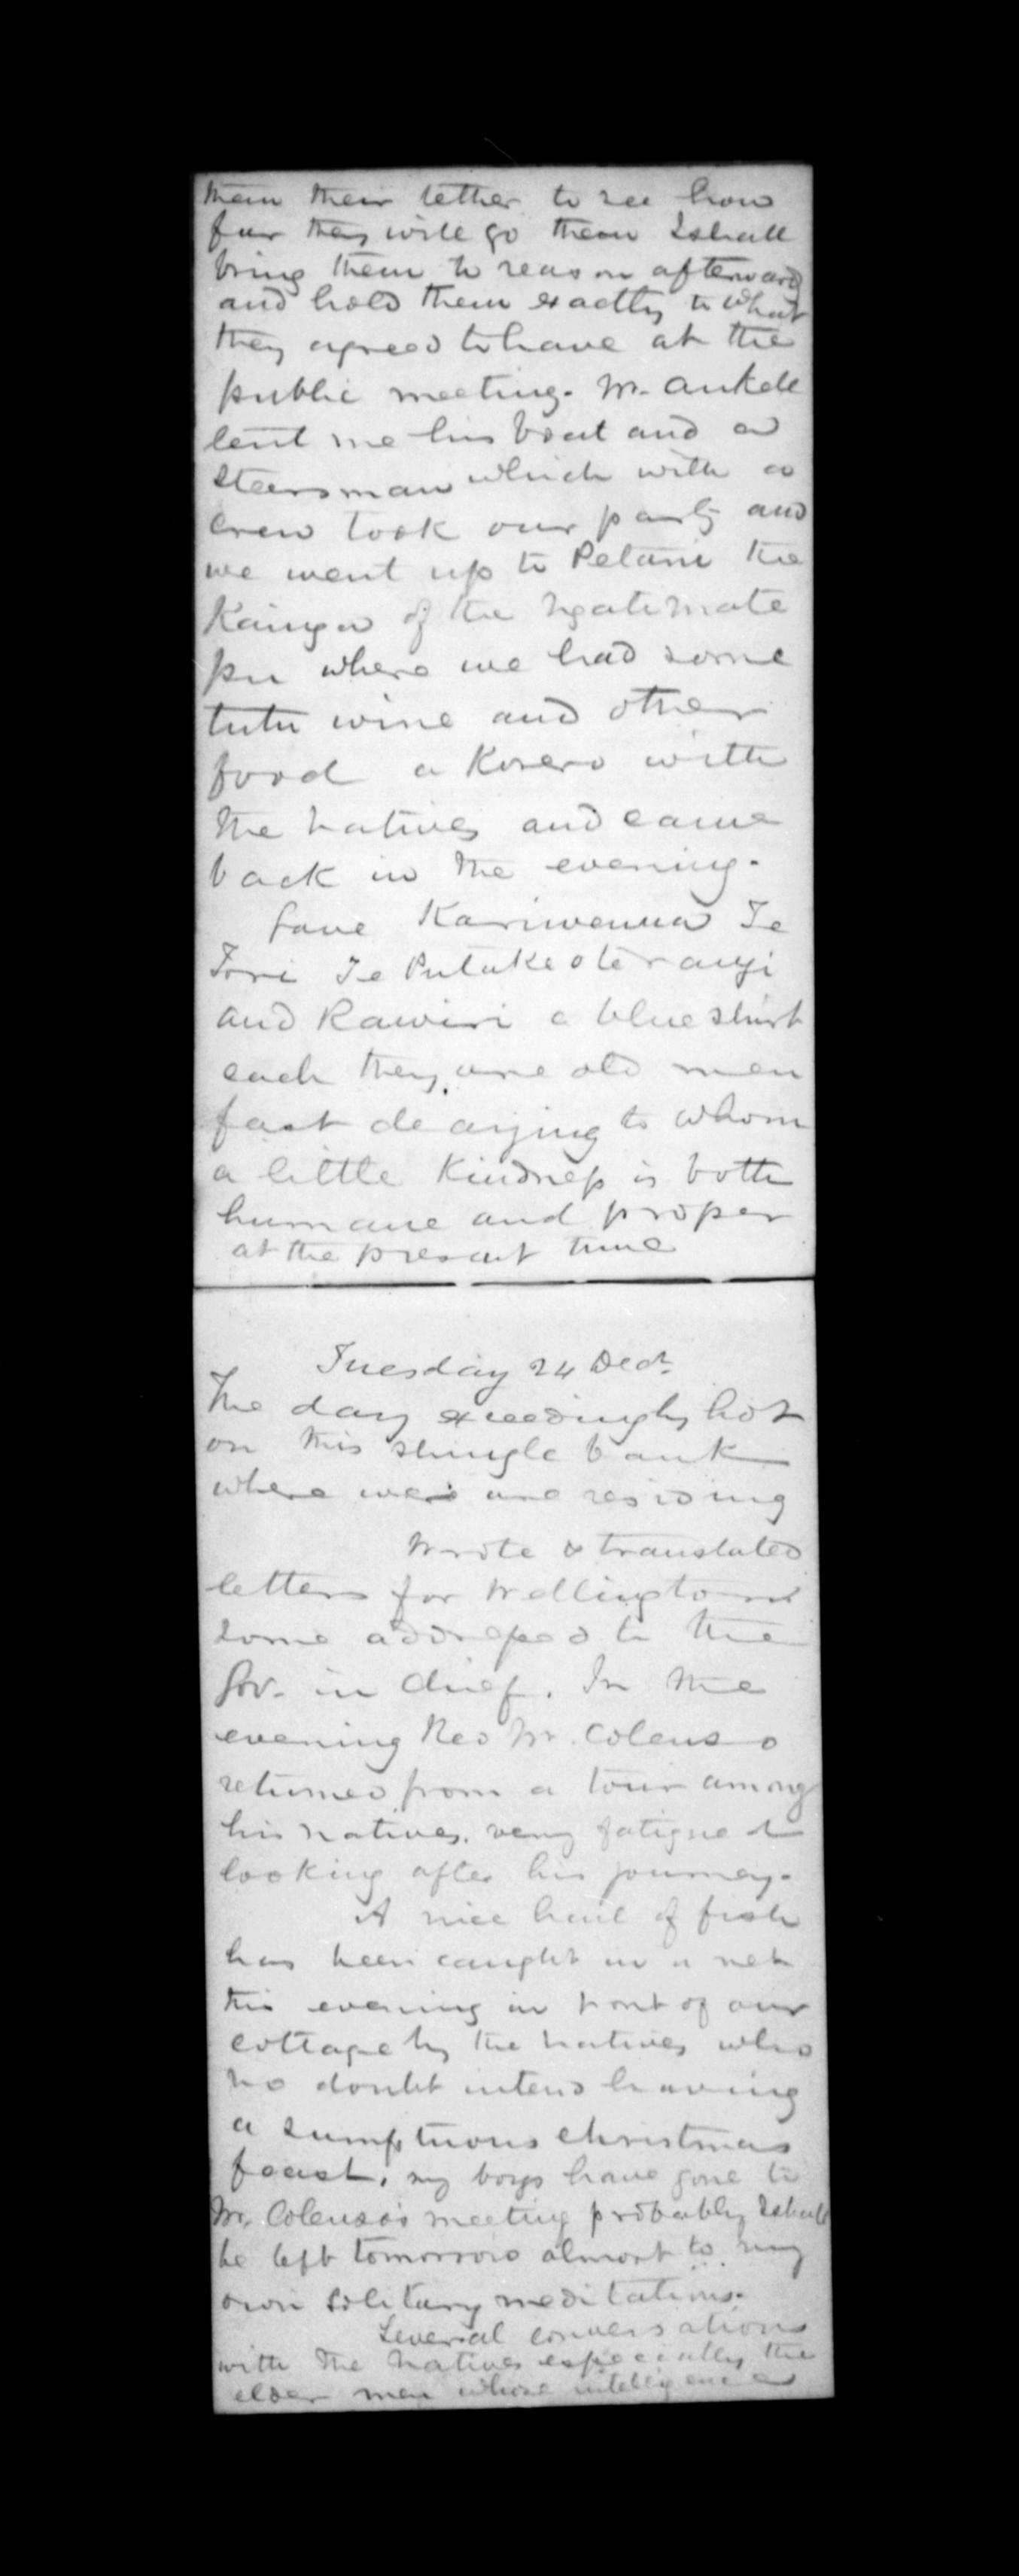 them their tether to see how
far they will go then I shall
bring them to reason afterward
and hold them exactly to what
they agreed to have at the
public meeting. Mr. Ankell
lent me his boat and a
steersman which with a
crew took our party and
we went up to Petane the
Kainga of the Ngatimate
pu where we had some
tutu wine and other
food a Korero with
the natives and came
back in the evening.
Gave Karuwenua Te
Tore Te Putakeoterangi
and Rawiri a blue shirt
each they are old men
fast decaying to whom
a little kindness is both
humane and proper
at the present time
Tuesday 24 Decr.
The day exceedingly hot
on this shingle bank
where we are residing
Wrote & translated
letters for Wellington
some addressed to the
Gov. in Chief. In the
evening Rev Mr. Colenso
returned from a tour among
his natives. very fatigued
looking after his journey.
A nice haul of fish
has been caught in a net
this evening in front of our
cottage by the natives who
no doubt intend having
a sumptuous christmas
feast. my boys have gone to
Mr. Colenso's meeting probably I shall
be left tomorrow almost to my
own solitary meditations.
Several conversations
with the natives especially the
elder men whose intelligence